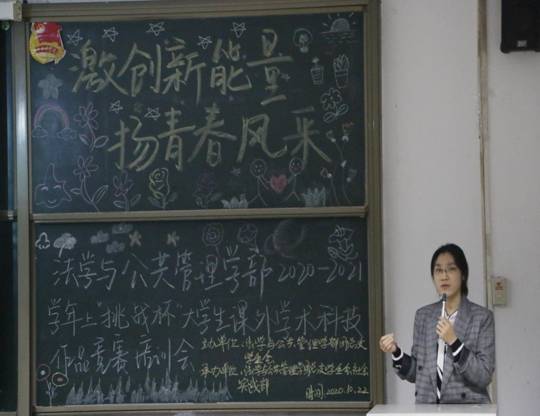 激创新能量
扬青春风采
法学与公共管理学部 2020-2021
学年上"挑战杯"大学生课外学术科技
作品竞赛培训会
主办单位:法学与公共管理学部团总支
学生会
承办单位:法学与公共管理学部
实践部
时间:2020.10.22